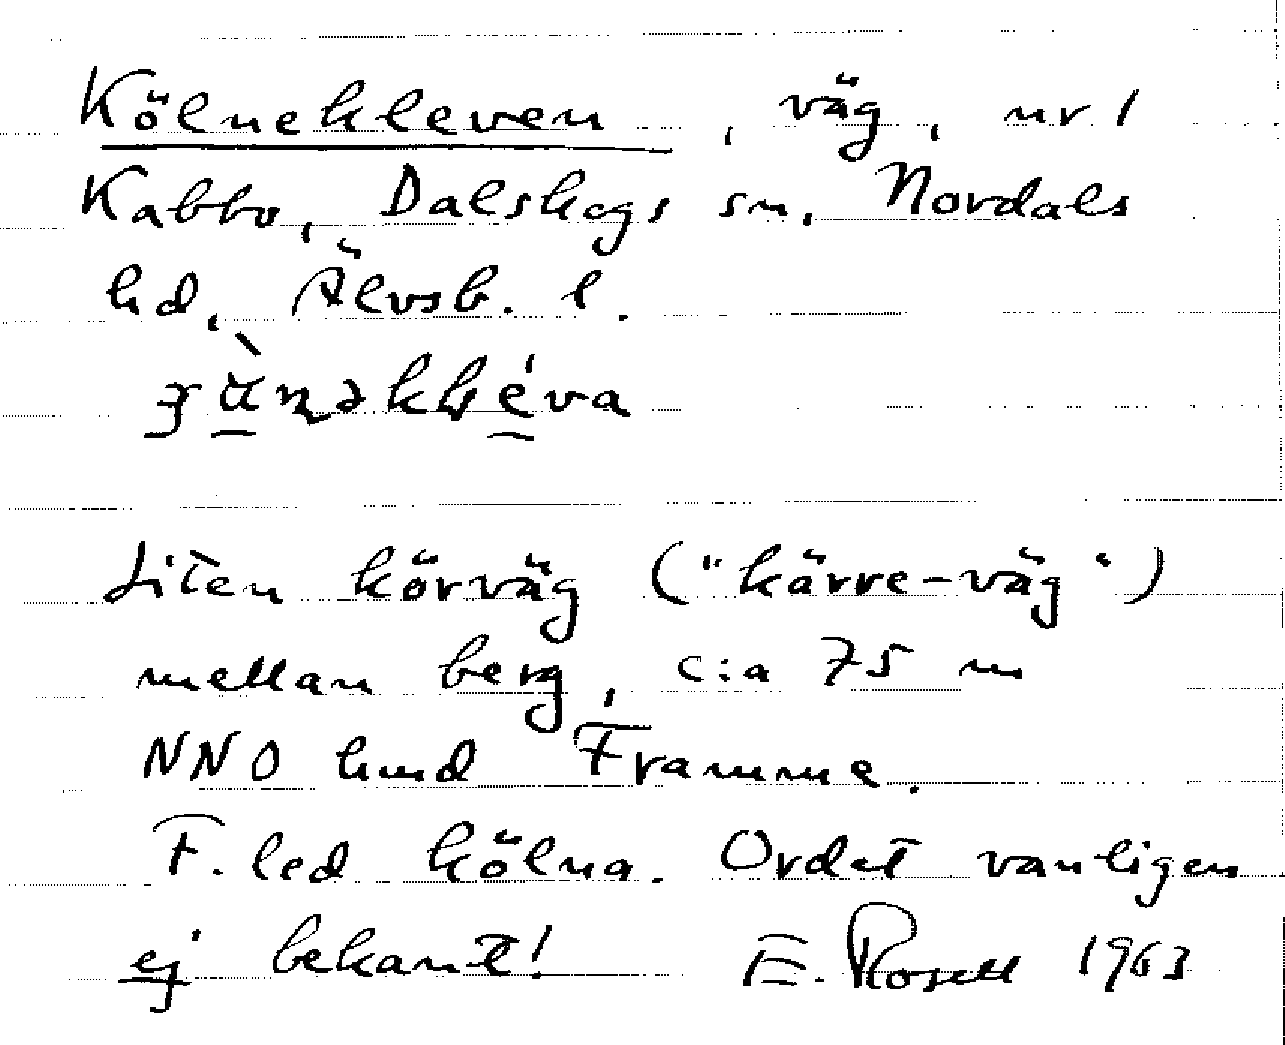 Kölnekleven, väg, nr 1
Kabbo, Dalskogs sn, Nordals
hd, Älvsb. l.
Liten körväg ("kärre-väg")
mellan berg, c:a 75 m
NNO hmd Framme.
F. led kölna. Ordet vanligen
ej bekant! E. Rosell 1963